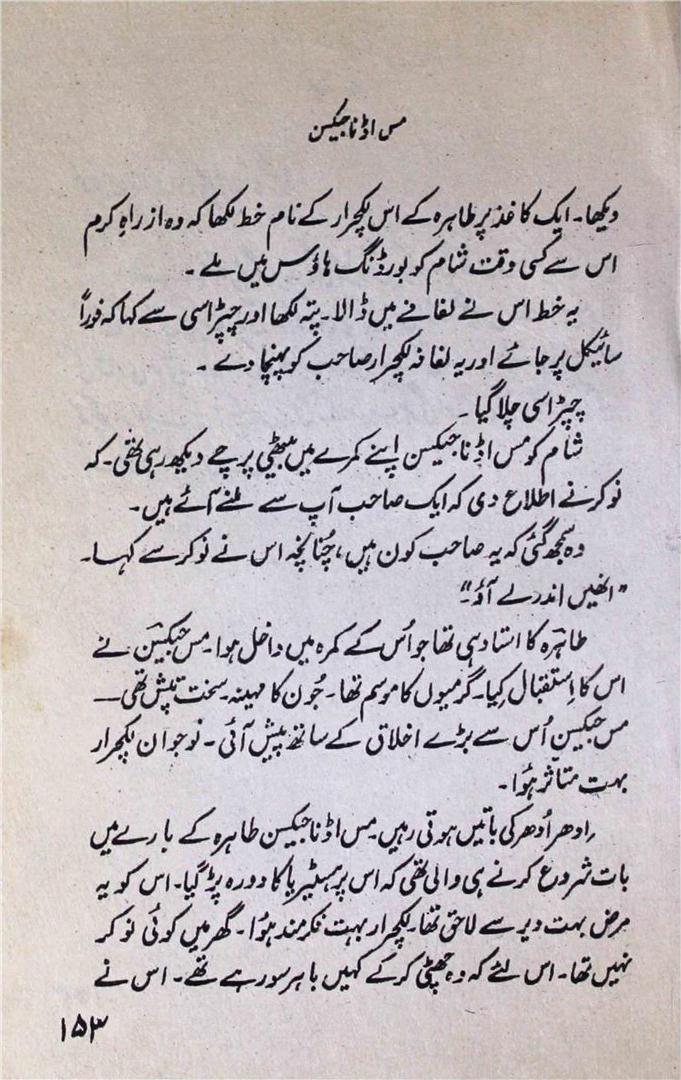 مس اڈنا جیکسن
دیکھا۔ ایک کاغذ پر طاہرہ کے اس لیکچرار کے نام خط لکھا کہ وہ از راہِ کرم
اس سے کسی وقت شام کو بورڈنگ ہاؤس میں ملے ۔
یہ خط اس نے لفافے میں ڈالا۔ پتہ لکھا اور چپڑاسی سے کہا کہ فوراً
سائیکل پر جائے اور یہ لفافہ لیکچرار صاحب کو پہنچا دے ۔
چپڑاسی چلا گیا ۔
شام کو مس اڈنا جیکسن اپنے کمرے میں بیٹھی پرچے دیکھ رہی تھی۔ کہ
نوکر نے اطلاع دی کہ ایک صاحب آپ سے ملنے آئے ہیں۔
وہ سمجھ گئی کہ یہ صاحب کون ہیں ، چنانچہ اس نے نوکر سے کہا۔
”انھیں اندر لے آؤ۔“
طاہرہ کا استاد ہی تھا جو اُس کے کمرہ میں داخل ہوا۔ مس جیکسن نے
اس کا اِستقبال کیا۔ گرمیوں کا موسم تھا۔ جُون کا مہینہ۔ سخت تپش تھی —
مس جیکسن اُس سے بڑے اخلاق کے ساتھ پیش آئی ۔ نوجوان لیکچرار
بہت متاثر ہُوا ۔
اِدھر اُدھر کی باتیں ہوتی رہیں۔ مس اڈنا جیکسن طاہرہ کے بارے میں
بات شروع کرنے ہی والی تھی کہ اس پر ہسٹیریا کا دورہ پڑ گیا۔ اس کو یہ
مرض بہت دیر سے لاحق تھا۔ لیکچرار بہت فکرمند ہُوا ۔ گھر میں کوئی نوکر
نہیں تھا۔ اس لئے کہ وہ چھٹی کرکے کہیں باہر سو رہے تھے ۔ اس نے
۱۵۳